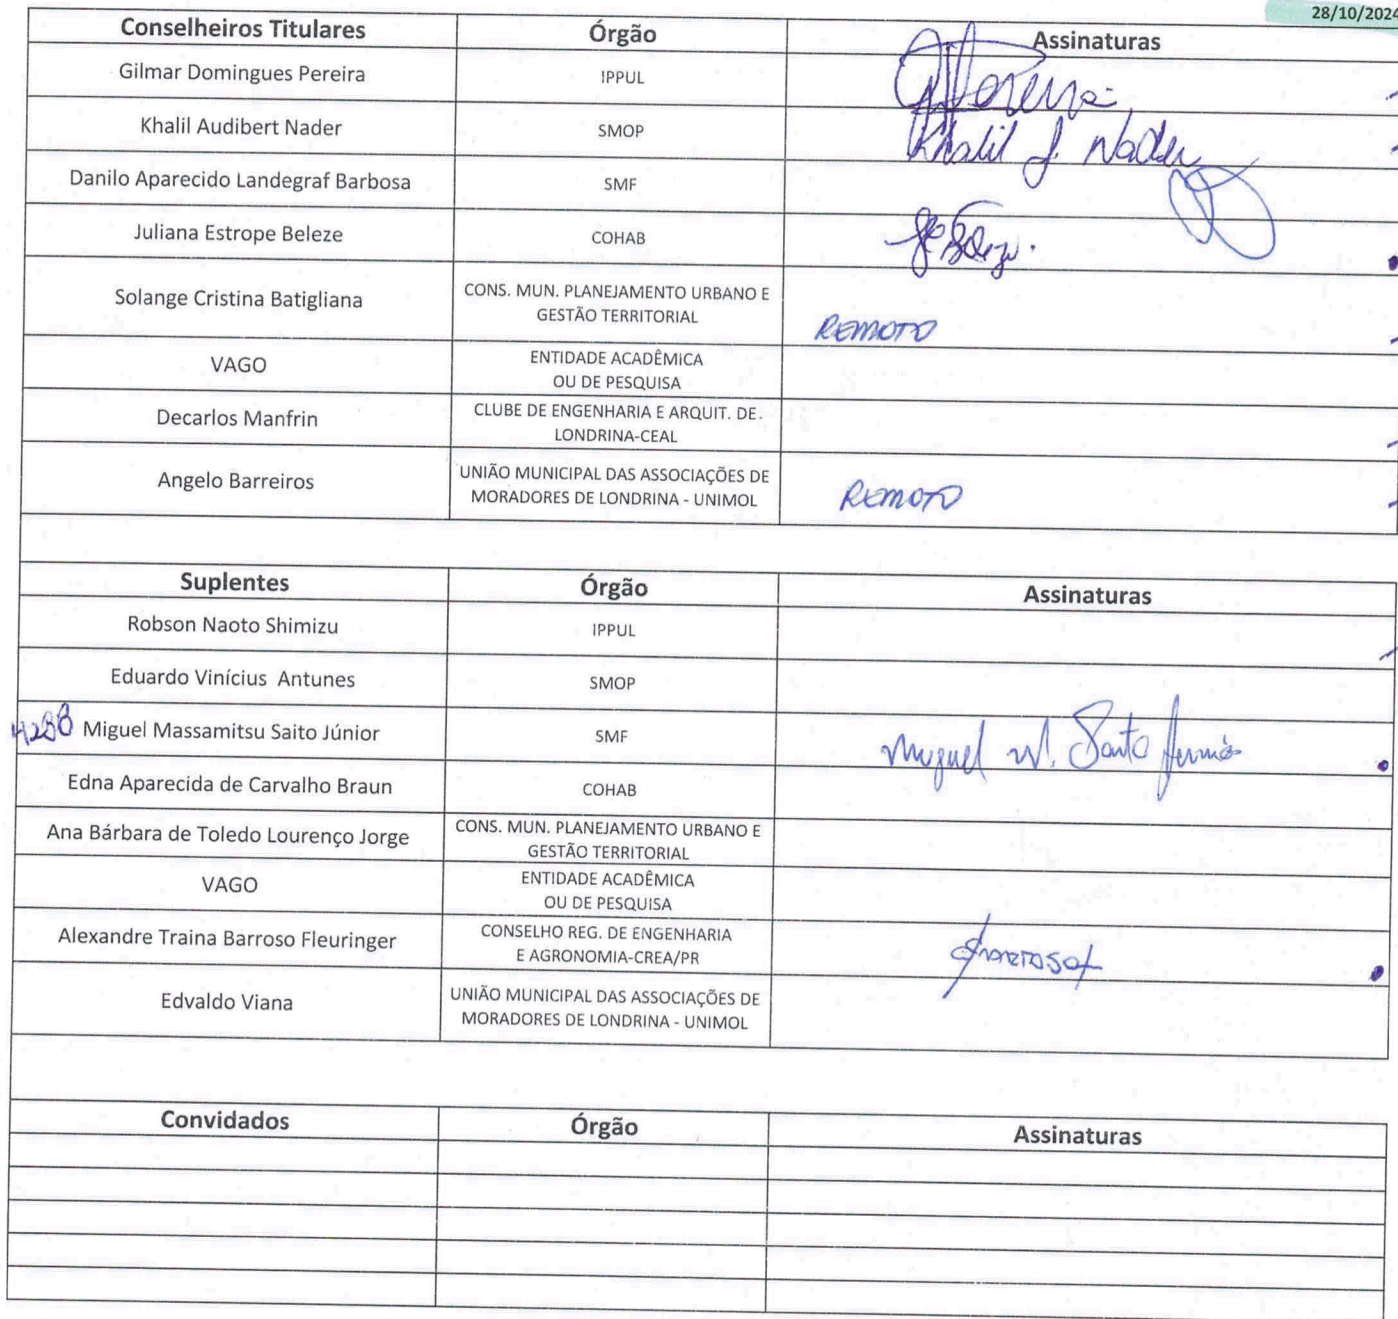 28/10/2024
Conselheiros Titulares Órgão Assinaturas
Gilmar Domingues Pereira IPPUL
Khalil Audibert Nader SMOP Khalil J. Nader
Danilo Aparecido Landegraf Barbosa SMF
Juliana Estrope Beleze COHAB
Solange Cristina Batigliana CONS. MUN. PLANEJAMENTO URBANO E
GESTÃO TERRITORIAL REMOTO
VAGO ENTIDADE ACADÊMICA
OU DE PESQUISA
Decarlos Manfrin CLUBE DE ENGENHARIA E ARQUIT. DE.
LONDRINA-CEAL
Angelo Barreiros UNIÃO MUNICIPAL DAS ASSOCIAÇÕES DE
MORADORES DE LONDRINA - UNIMOL REMOTO
Suplentes Órgão Assinaturas
Robson Naoto Shimizu IPPUL
Eduardo Vinícius Antunes SMOP
Miguel Massamitsu Saito Júnior SMF Miguel M.
Edna Aparecida de Carvalho Braun COHAB
Ana Bárbara de Toledo Lourenço Jorge CONS. MUN. PLANEJAMENTO URBANO E
GESTÃO TERRITORIAL
VAGO ENTIDADE ACADÊMICA
OU DE PESQUISA
Alexandre Traina Barroso Fleuringer CONSELHO REG. DE ENGENHARIA
E AGRONOMIA-CREA/PR
Edvaldo Viana UNIÃO MUNICIPAL DAS ASSOCIAÇÕES DE
MORADORES DE LONDRINA - UNIMOL
Convidados Órgão Assinaturas